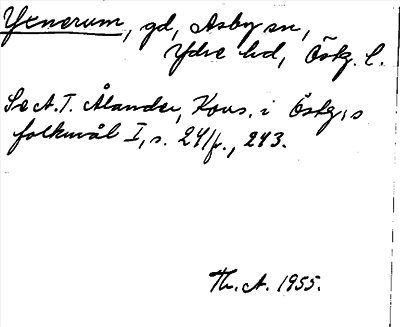 Ytnerum, gd, Asby sn,
Ydre hd, Östg. l.
Se A. T. Ålander, Kons. i Östg:s
folkmål I, s. 241f., 243.
Th. A. 1955.